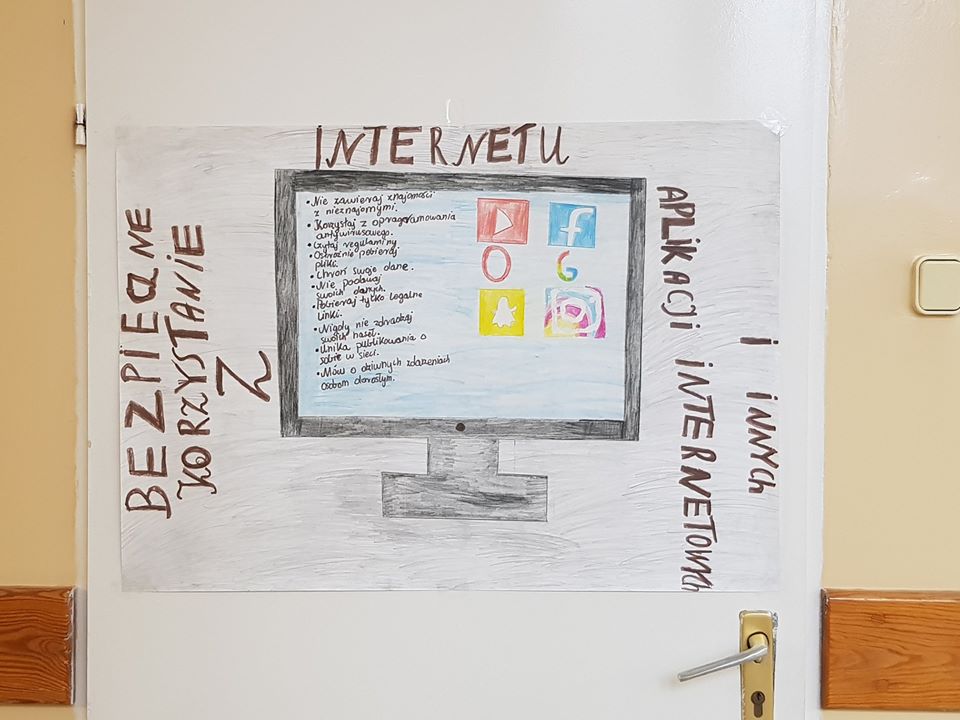 BEZPIECZNE
KORZYSTANIE
Z
INTERNETU
i iNNYCh
APLiKACji iNTERNETOWYCh
• Nie zawieraj znajomości
z nieznajomymi.
• Korzystaj z oprogramowania
antywirusowego.
• Czytaj regulaminy
• Ostrożnie pobieraj
pliki.
• Chroń swoje dane.
• Nie podawaj
swoich danych.
• Pobieraj tylko legalne
linki.
• Nigdy nie zdradzaj
swoich haseł.
• Unika publikowania o
sobie w sieci.
• Mów o dziwnych zdarzeniach
osobom dorosłym.
f
O
G